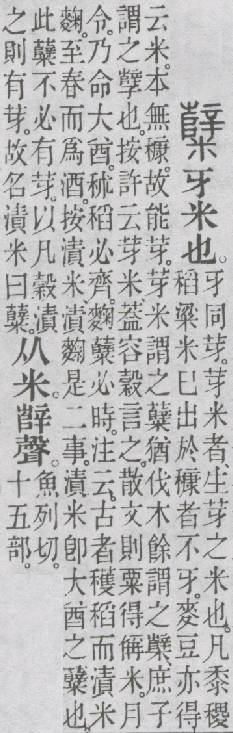 糱 牙米也。
牙同芽。芽米者、生芽之米也。凡黍稷
稻粱米巳出於穅者不牙。麥豆亦得
云米。本無穅。故能芽。芽米謂之糱。猶伐木餘謂之櫱。庶子
謂之孼也。按許云芽米、葢容穀言之。散文則粟得偁米。月
令。乃命大酋。秫稻必齊。麴糱必時。注云。古者穫稻而漬米
麴。至春而爲酒。按漬米漬麴是二事。漬米卽大酋之糱也。
此糱不必有芽。以凡穀漬
之則有芽。故名漬米曰糱。
从米。辥聲。
魚列切。
十五部。